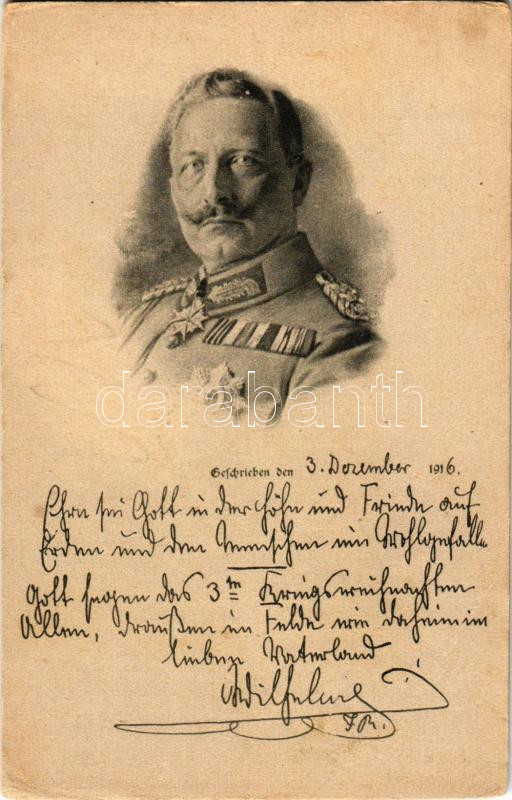 darabanth
Geschrieben den 3. Dezember 1916.
Ehre sei Gott in der Höhe und Friede auf
Erden und den Menschen ein Wohlgefallen
Gott segne das 3te Kriegsweihnachten
Allen, draußen im Felde wie daheim im
lieben Vaterland
Wilhelm
I.R.